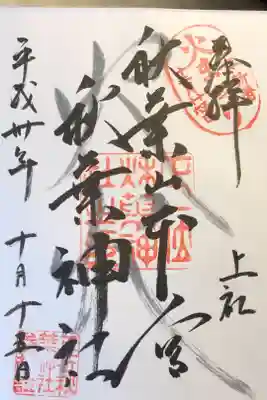 奉拝
上社
秋葉山本宮
秋葉神社
平成卅年 十月十五日